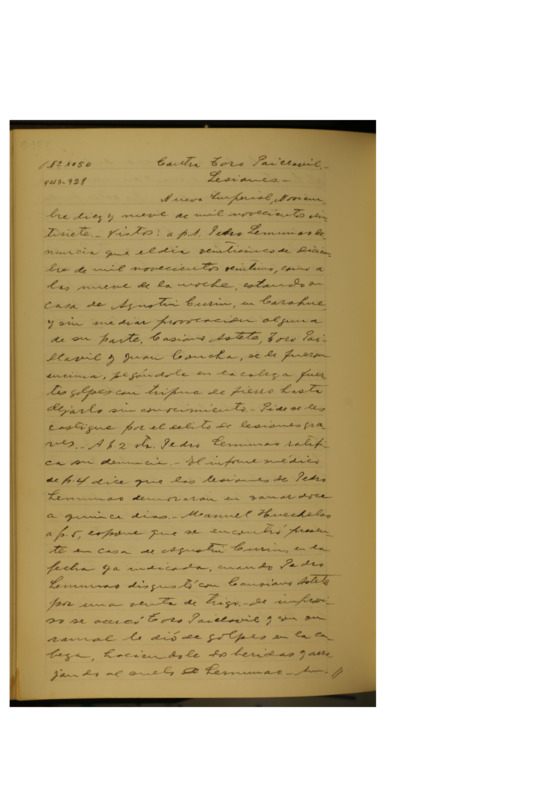 Nº 1050 Contra Toro Paillavil.-
Lesiones.-
Nueva Imperial, Noviem-
bre diez y nueve de mil novecientos vein
tisiete.- Vistos: a p.1. Pedro Lemunao de-
nuncia que el dia veinticinco de Diciem
bre de mil novecientos veintiuno, como a
las nueve de la noche, estando en
casa de Agustin Curin, en Carahue
y sin mediar provocacion alguna
de su parte, Casiano Astete, Toro Pai-
llavil y Juan Concha, se le fueron
encima, pegándole en la cabeza fuer
tes golpes con de fierro hasta
dejarlo sin conocimiento.- Pide se les
castigue por el delito de lesiones gra
ves.- A f. 2 Pedro Lemunao ratifi-
ca su denuncia.- El informe médico
de p.4 dice que las lesiones de Pedro
Lemunao demoraran en sanar doce
a quince dias.- Manuel Huechelao
a p.5, expone que se encontró presen
te en casa de Agustin Curin, en la
fecha ya indicada, cuando Pedro
Lemunao disgustó con Casiano Astete
por una venta de trigo.- De improvi-
so se acercó Toro Paillavil y con un
ramal le dió de golpes en la ca-
beza, haciendole dos heridas y arro
jando al suelo a Lemunao.-